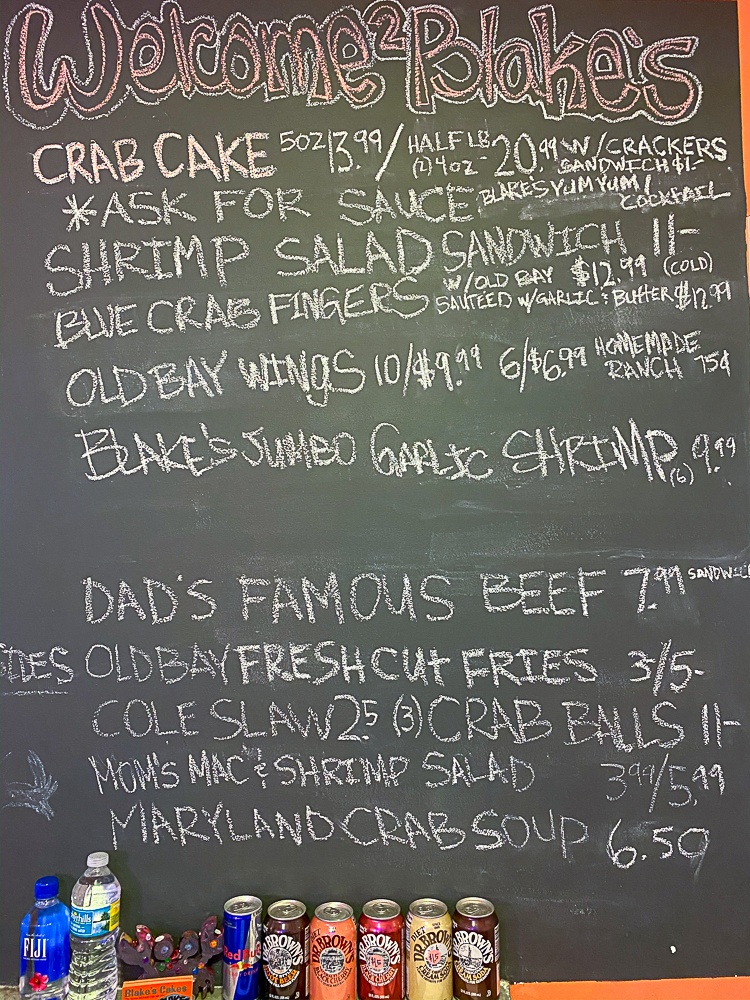 Welcome 2 Blake's
CRAB CAKE 5OZ 13.99 / HALF LB (2) 4OZ- 20.99 W/CRACKERS
SANDWICH $1-
*ASK FOR SAUCE BLAKES YUM YUM / COCKTAIL
SHRIMP SALAD SANDWICH 11- (COLD)
BLUE CRAB FINGERS W/OLD BAY $12.99
SAUTEED W/GARLIC & BUTTER $12.99
OLD BAY WINGS 10/$9.99 6/$6.99 HOMEMADE RANCH 75¢
BLAKE'S JUMBO GARLIC SHRIMP (6) 9.99
DAD'S FAMOUS BEEF 7.99 SANDWIC
SIDES OLD BAY FRESH CUT FRIES 3-/5-
COLE SLAW 2.5 (3) CRAB BALLS 11-
MOM'S MAC & SHRIMP SALAD 3.99/5.99
MARYLAND CRAB SOUP 6.50
FIJI
Blake's Cakes
Red Bull
DR. BROWN'S
DR. BROWN'S
BLACK CHERRY
DIET
DR. BROWN'S
BLACK CHERRY
DIET
DR. BROWN'S
CREAM SODA
DR. BROWN'S